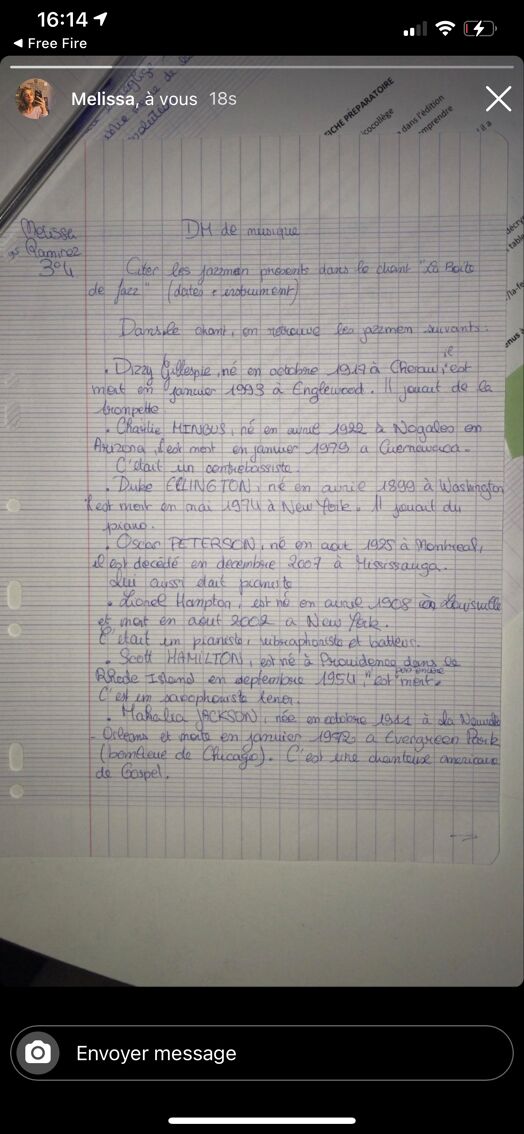 16:14
Free Fire
Melissa, à vous 18s
FICHE PREPARATOIRE
dans l'édition
Melissa
Ramirez
3°4
DM de musique
Citer les jazzman présents dans le chant "La Boîte
de Jazz" (dates + instrument)
Dans le chant, on retrouve les jazzmen suivants :
• Dizzy Gillespie, né en octobre 1917 à Cheraw, il est
mort en janvier 1993 à Englewood. Il jouait de la
trompette.
• Charlie MINGUS, né en avril 1922 à Nogales en
Arizona, il est mort en janvier 1979 a Cuernavaca.
C'était un contrebassiste.
• Duke ELLINGTON, né en avril 1899 à Washington
il est mort en mai 1974 à New York. Il jouait du
piano.
• Oscar PETERSON, né en août 1925 à Montreal,
il est décédé en decembre 2007 à Mississauga.
Lui aussi était pianiste
• Lionel Hampton, est né en avril 1908 à Louisville
et mort en aout 2002 à New York.
C'était un pianiste, vibraphoniste et batteur.
• Scott HAMILTON, est né à Providence dans le
Rhode Island en septembre 1954, "est pas encore mort".
C'est un saxophoniste tenor.
• Mahalia JACKSON, née en octobre 1911 à la Nouvelle
- Orléans et morte en janvier 1972 a Evergreen Park
(banlieue de Chicago). C'est une chanteuse americaine
de Gospel.
Envoyer message